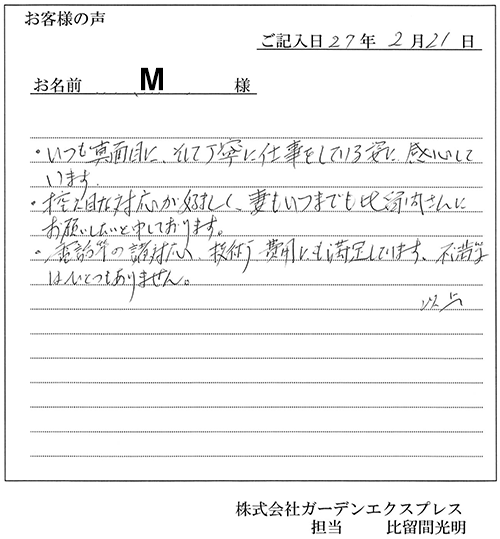 お客様の声
ご記入日 27年 2月21日
お名前 M 様
・いつも真面目に、そして丁寧に仕事をしている姿に感心して
います。
・控え目な対応が好ましく、妻もいつまでも比留間さんに
お願いしたいと申しております。
・電話等の諸対応、技術、費用にも満足しています、不満等
はひとつもありません。
以上
株式会社ガーデンエクスプレス
担当 比留間光明